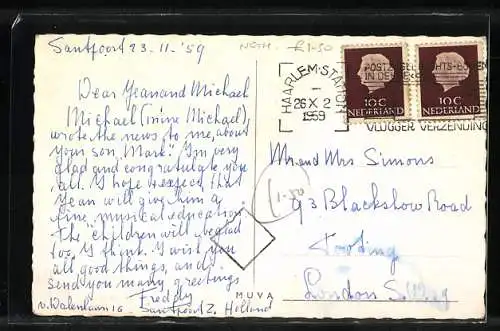 Santpoort 23-11-'59
NETH. £1-50
Dear Jean and Michael
Michael (mine Michael)
wrote the news to me, about
your son "Mark". I'm very
glad and congratulate you
all. I hope & expect, that
Jean will give him a
fine, musical education.
The "children will be glad
too, I think. I wish you
all good things, and
send you many greetings
Freddy
Santpoort Z. Holland
MUVA
HAARLEM-STATION
26 X 2
1959
POSTZEGEL RECHTS-BOVEN
IN DE
VLUGGER VERZENDING
10C
NEDERLAND
10C
NEDERLAND
1-50
Mr and Mrs Simons
93 Blackshow Road
Tooting
London